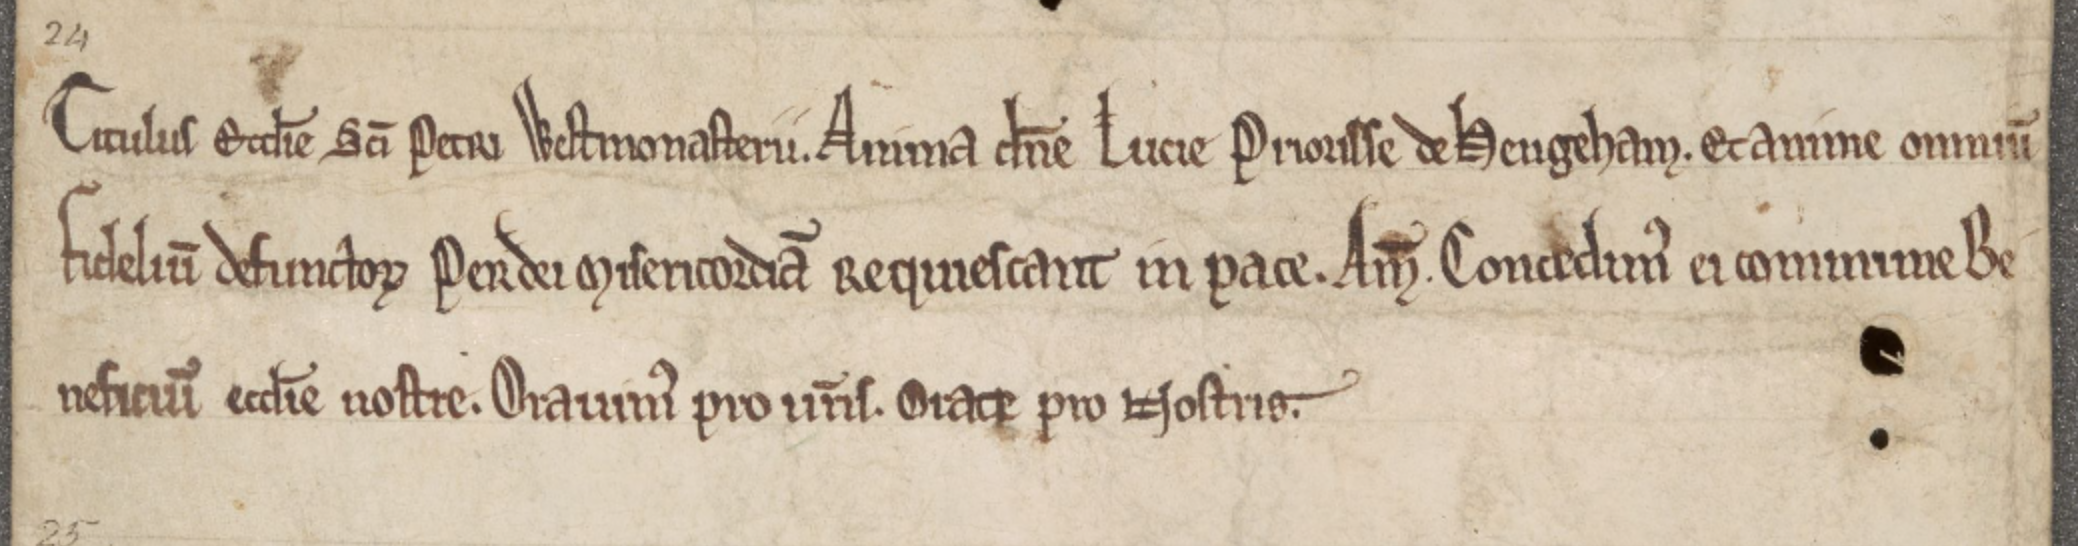 24
Titulus Eccl̄ie Sc̄i Petri Westmonasterii. Anima dn̄e Lucie Priorisse de Hengeham. Et anime omniū
fideliū defunctoꝝ Per dei misericordiā Requiescant in pace. Am̄. Concedimꝰ ei commune Be
neficiū eccl̄ie nostre. Orauimꝰ pro ur̄is. Orate pro Nostris.
25